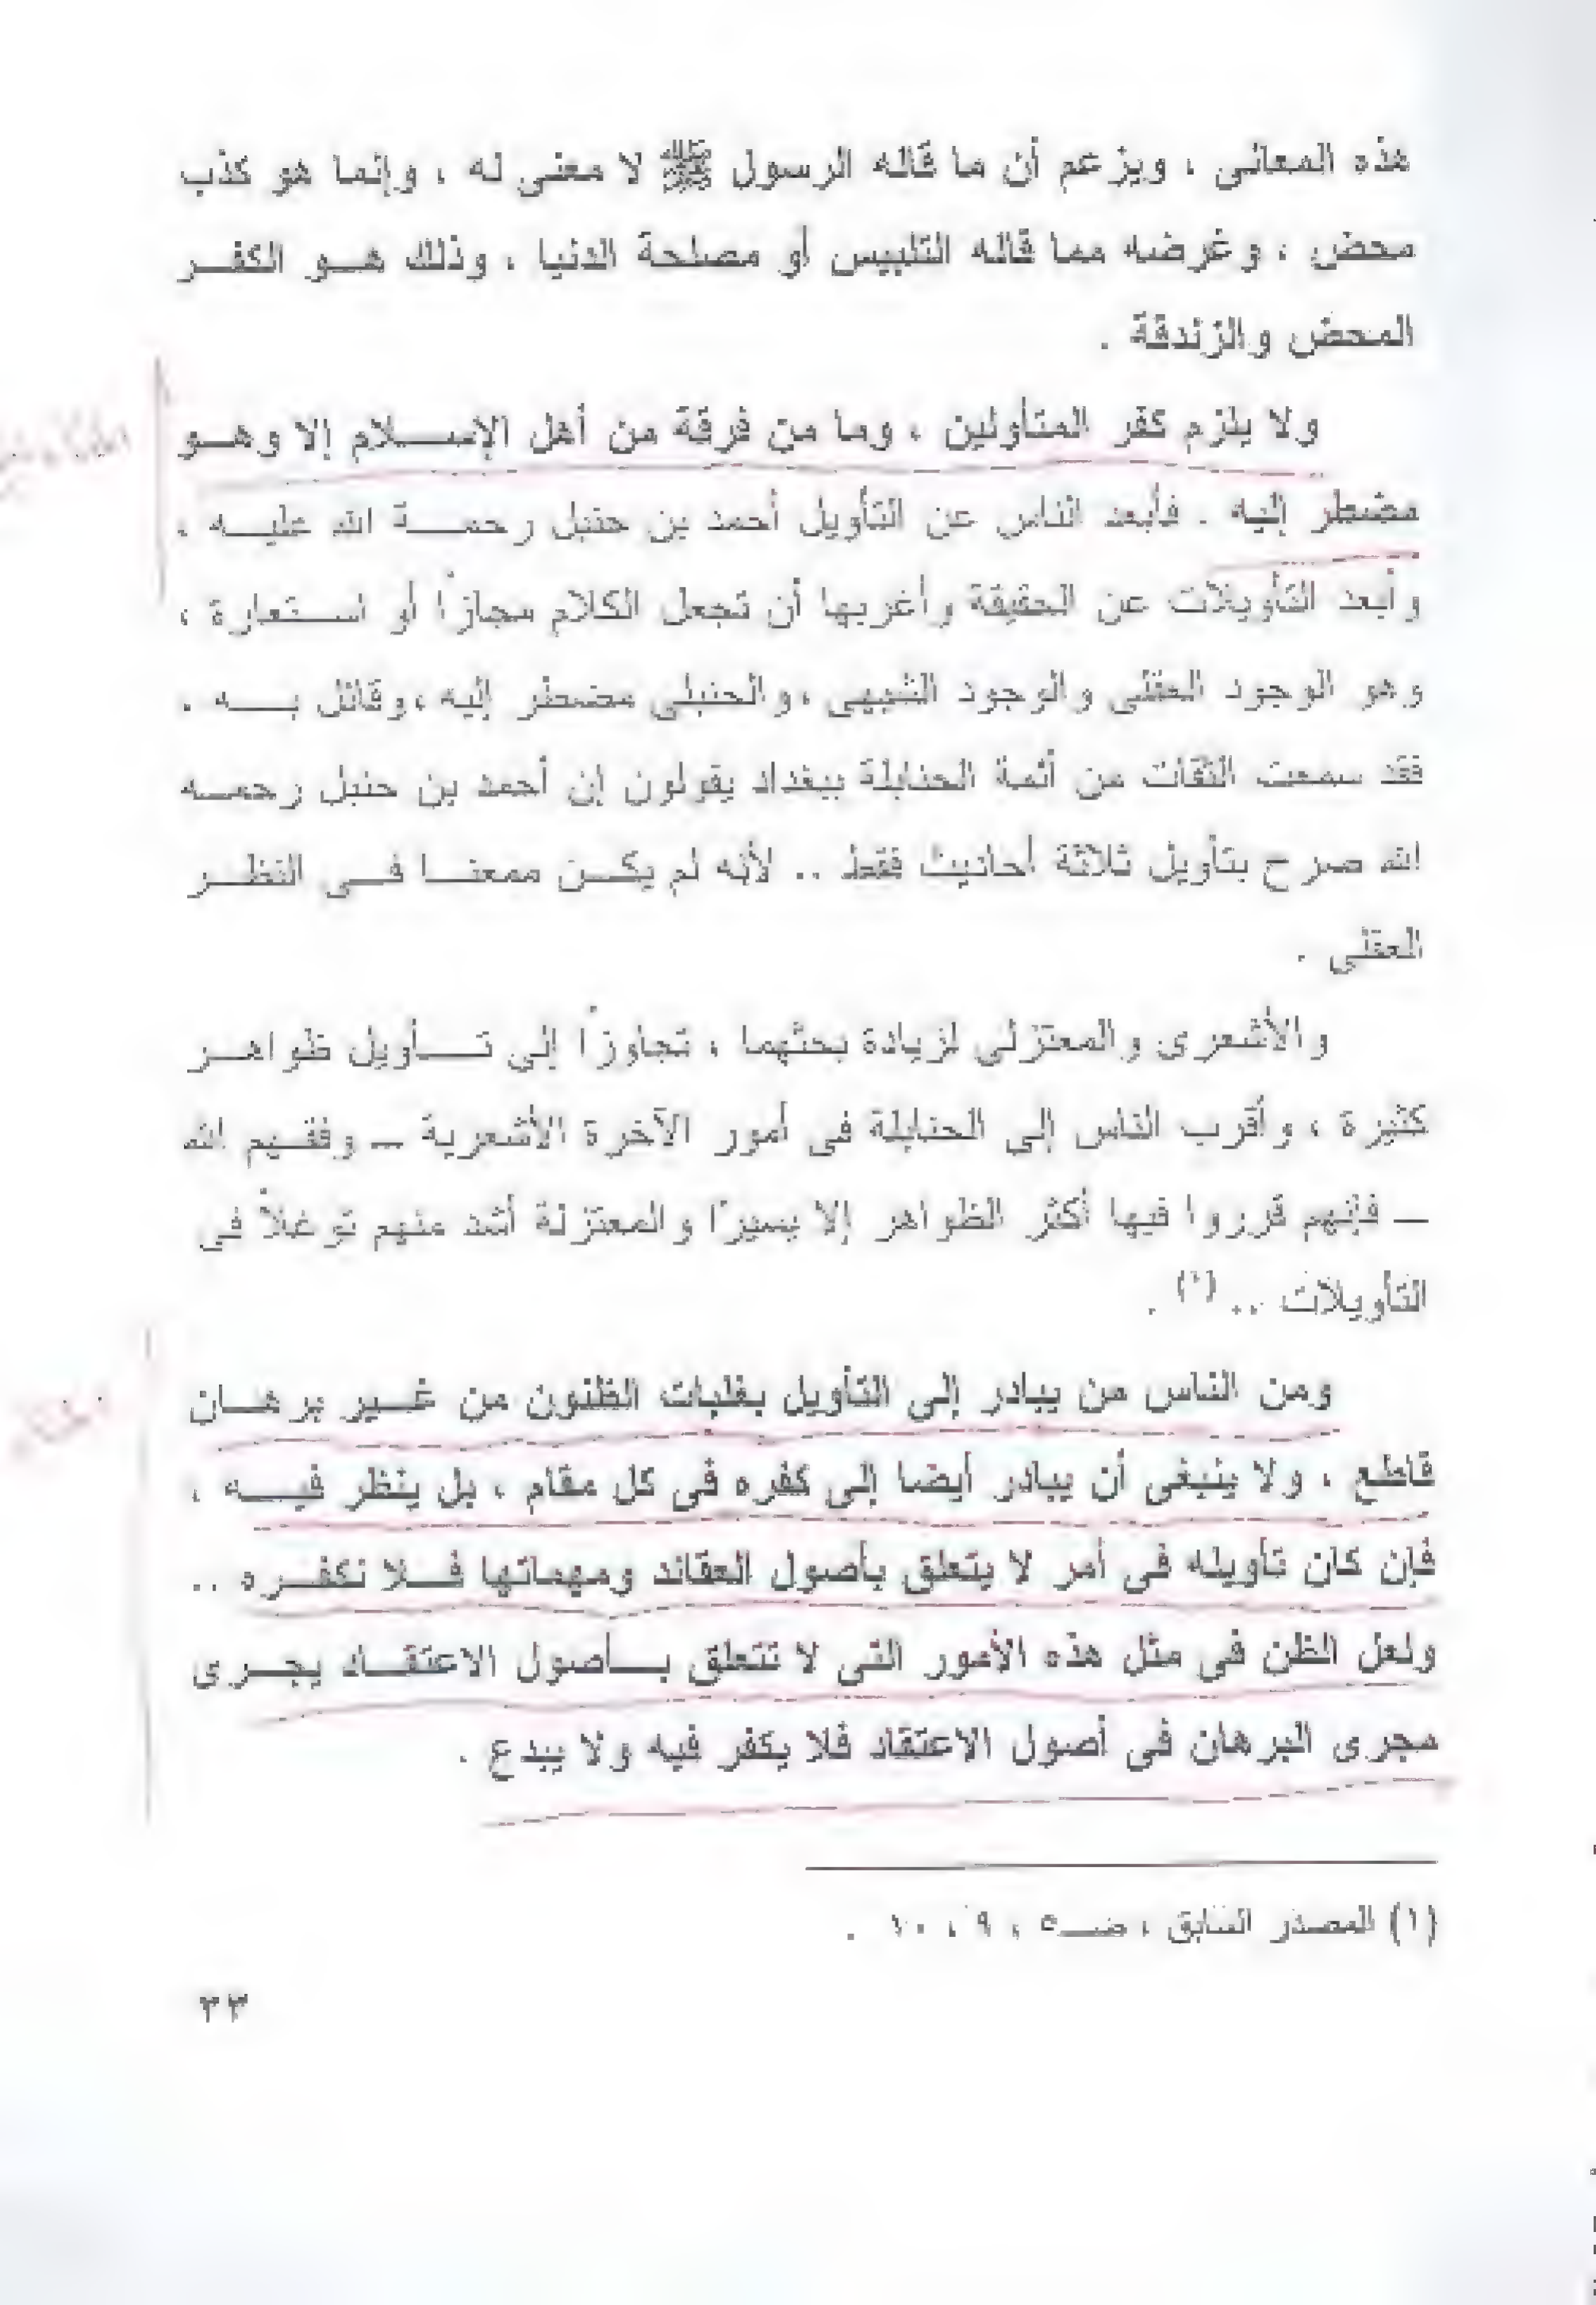 هذه المعانى ، ويزعم أن ما قاله الرسول ﷺ لا معنى له ، وإنما هو كذب
محض ، وغرضه مما قاله التلبيس أو مصلحة الدنيا ، وذلك هو الكفر
المحض والزندقة .
ولا يلزم كفر المتأولين ، وما من فرقة من أهل الإسلام إلا وهو
مضطر إليه . فأبعد الناس عن التأويل أحمد بن حنبل رحمة الله عليه .
وأبعد التأويلات عن الحقيقة وأغربها أن تجعل الكلام مجازاً أو استعارة ،
وهو الوجود العقلى والوجود الشبهى ، والحنبلى مضطر إليه ، وقائل به .
فقد سمعت الثقات من أئمة الحنابلة ببغداد يقولون إن أحمد بن حنبل رحمه
الله صرح بتأويل ثلاثة أحاديث فقط .. لأنه لم يكن ممعنا فى النظر
العقلى .
والأشعرى والمعتزلى لزيادة بحثهما ، تجاوزاً إلى تأويل ظواهر
كثيرة ، وأقرب الناس إلى الحنابلة فى أمور الآخرة الأشعرية – وفقهم الله
– فإنهم قرروا فيها أكثر الظواهر إلا يسيرًا والمعتزلة أشد منهم توغلاً فى
التأويلات .. (١) .
ومن الناس من يبادر إلى التأويل بغلبات الظنون من غير برهان
قاطع ، ولا ينبغى أن يبادر أيضا إلى كفره فى كل مقام ، بل ينظر فيه ،
فإن كان تأويله فى أمر لا يتعلق بأصول العقائد ومهماتها فلا نكفره ..
ولعل الظن فى مثل هذه الأمور التى لا تتعلق بأصول الاعتقاد يجرى
مجرى البرهان فى أصول الاعتقاد فلا يكفر فيه ولا يبدع .
(١) المصدر السابق ، صـ٥ ، ٩ ، ١٠ .
٣٣